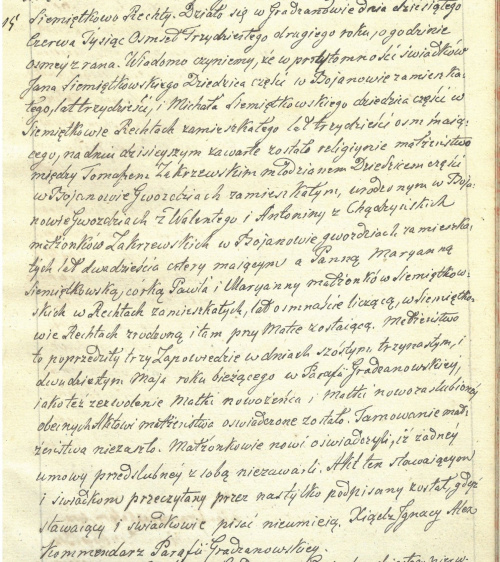 15 Siemiątkowo Rechty. Działo się w Gradzanowie dnia dziesiątego
Czerwca Tysiąc Osmset trzydziestego drugiego roku, o godzinie
osmey z rana. Wiadomo czyniemy, że w przytomności świadków
Jana Siemiątkowskiego Dziedzica części w Bojanowie zamieszka-
łego, lat trzydzieści, i Michała Siemiątkowskiego dziedzica części w
Siemiątkowie Rechtach zamieszkałego lat trzydzieści osm maią-
cego, na dniu dzisieyszym zawarte zostało religiyne małżeństwo
między Tomaszem Zakrzewskim młodzianem Dziedzicem części
w Bojanowie Gwozdziach zamieszkałym, urodzonym w Boja-
nowie Gwozdziach z Walentego i Antoniny z Chądzyńskich
małżonków Zakrzewskich w Bojanowie gwozdziach zamieszka-
łych lat dwadzieścia cztery maiącym a Panną Maryanną
Siemiątkowską, corką Pawła i Maryanny małżonków Siemiątkow-
skich w Rechtach zamieszkałych, lat osmnaście liczącą, w Siemiątko-
wie Rechtach zrodzoną i tam przy Matce zostaiącą. Małżeństwo
to poprzedziły trzy Zapowiedzie w dniach szóstym, trzynastym, i
dwudziestym Maja roku bieżącego w Parafii Gradzanowskiey,
iako też zezwolenie Matki nowożeńca i Matki nowozaslubioney
obecnych Aktowi małżenstwa oświadczone zostało. Tamowanie mał-
żenstwa niezaszło. Małżonkowie nowi oświadczyli, iż żadney
umowy przedslubney z sobą niezawarli. Akt ten stawaiącym
i swiadkom przeczytany przez nas tylko podpisany został, gdyż
stawaiący i świadkowie pisać nieumieią. Xiądz Ignacy
Kommendarz Parafii Gradzanowskiey.